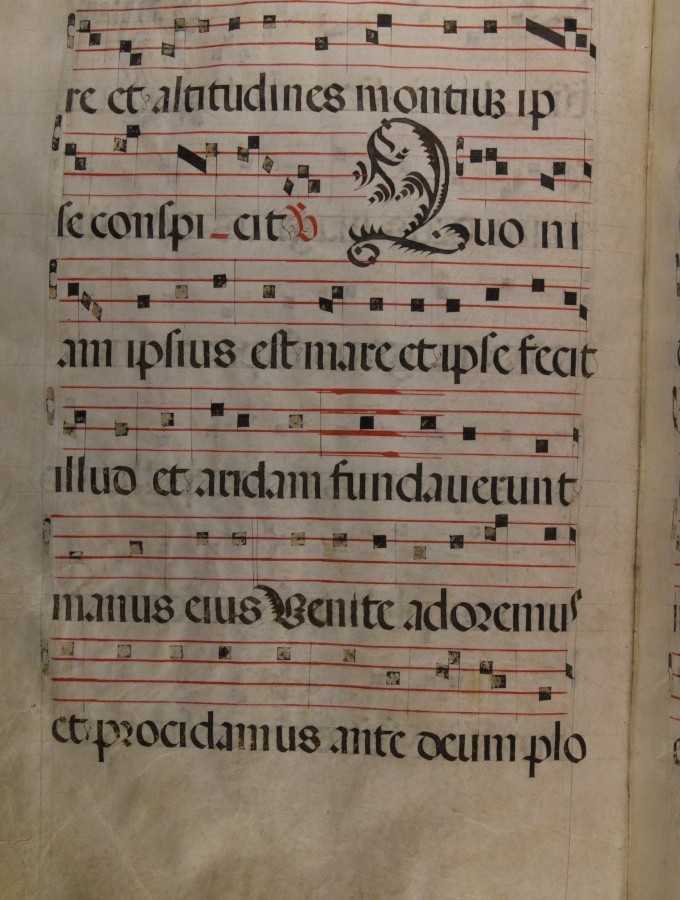 re et altitudines montiuʒ ip
se conspi_cit ℟ Quo ni
am ipsius est mare et ipse fecit
illud et aridam fundauerunt
manus eius Venite adoremus
et procidamus ante deum plo